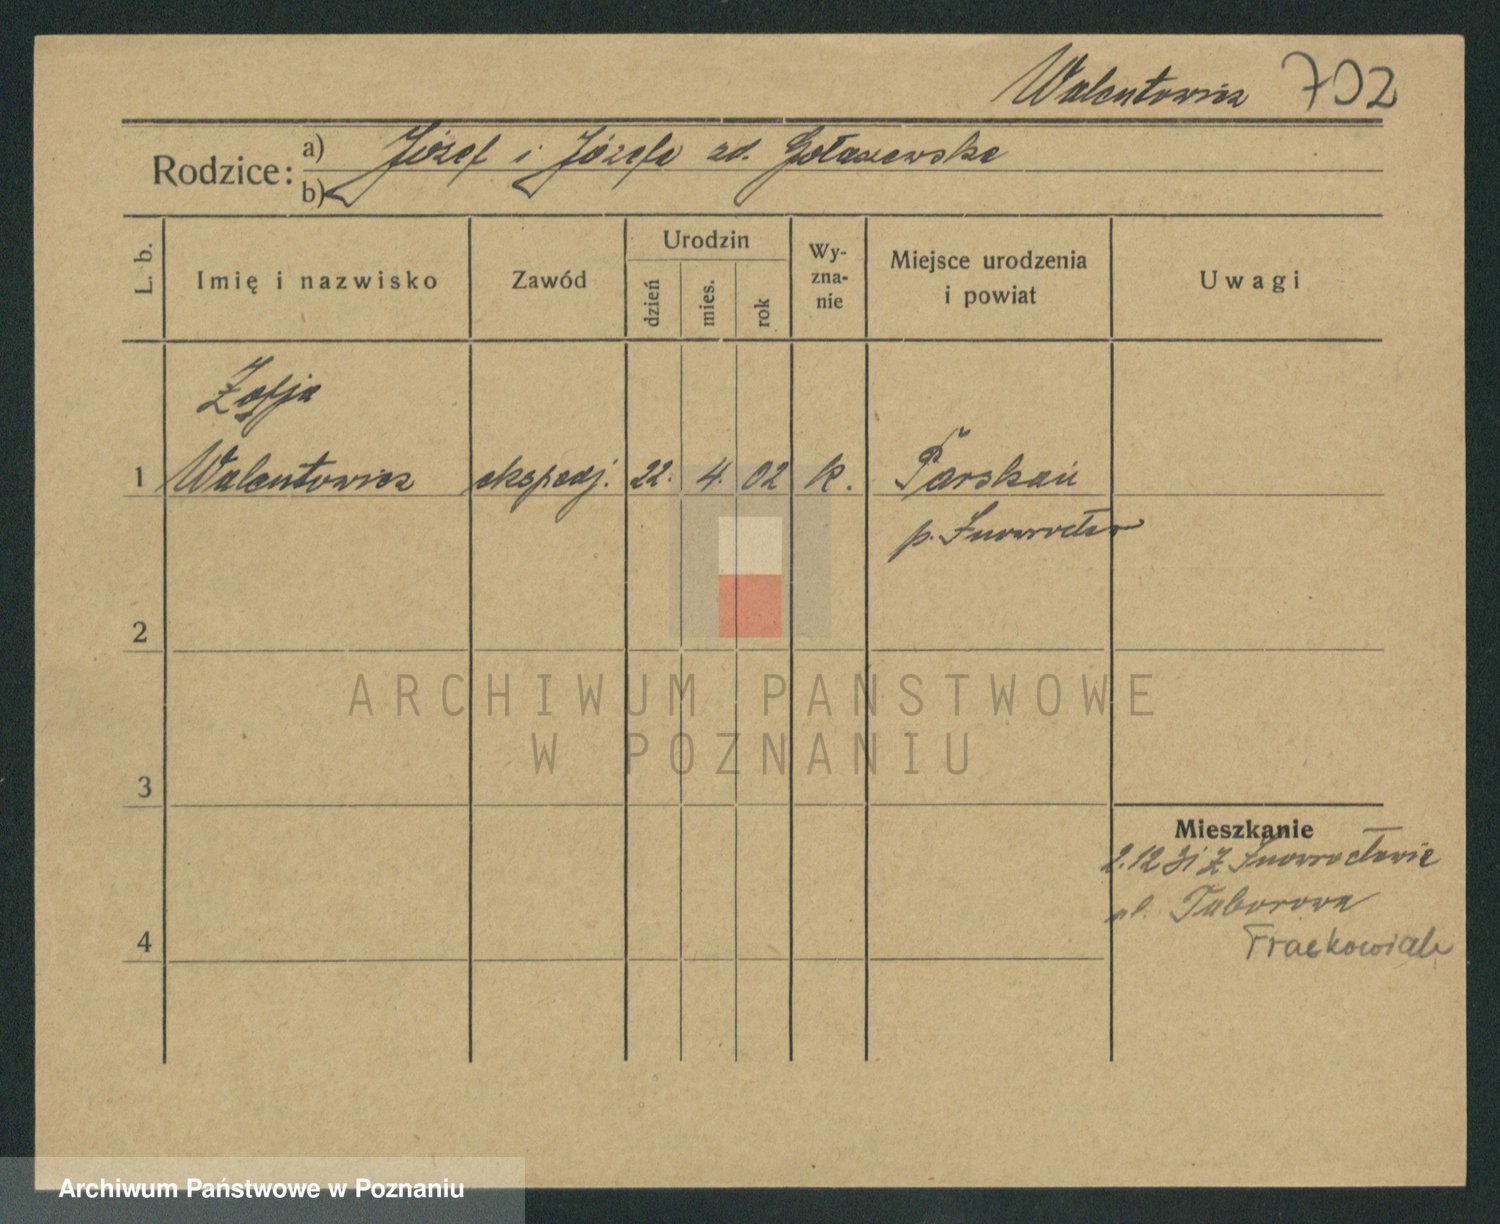 Walentowicz 702
Rodzice: a) Józef i Józefa zd. Gołaszewska
b)
L. b.
Imię i nazwisko
Zawód
Urodzin
dzień
mies.
rok
Wy-
zna-
nie
Miejsce urodzenia
i powiat
Uwagi
Zofja
1 Walentowicz ekspedj. 22. 4. 02 k. Parskań
p. Inowrocław
2
3
4
Mieszkanie
2.12 31 z Inowrocławie
ul. Taborowa
Frackowiak
ARCHIWUM PAŃSTWOWE
W POZNANIU
Archiwum Państwowe w Poznaniu